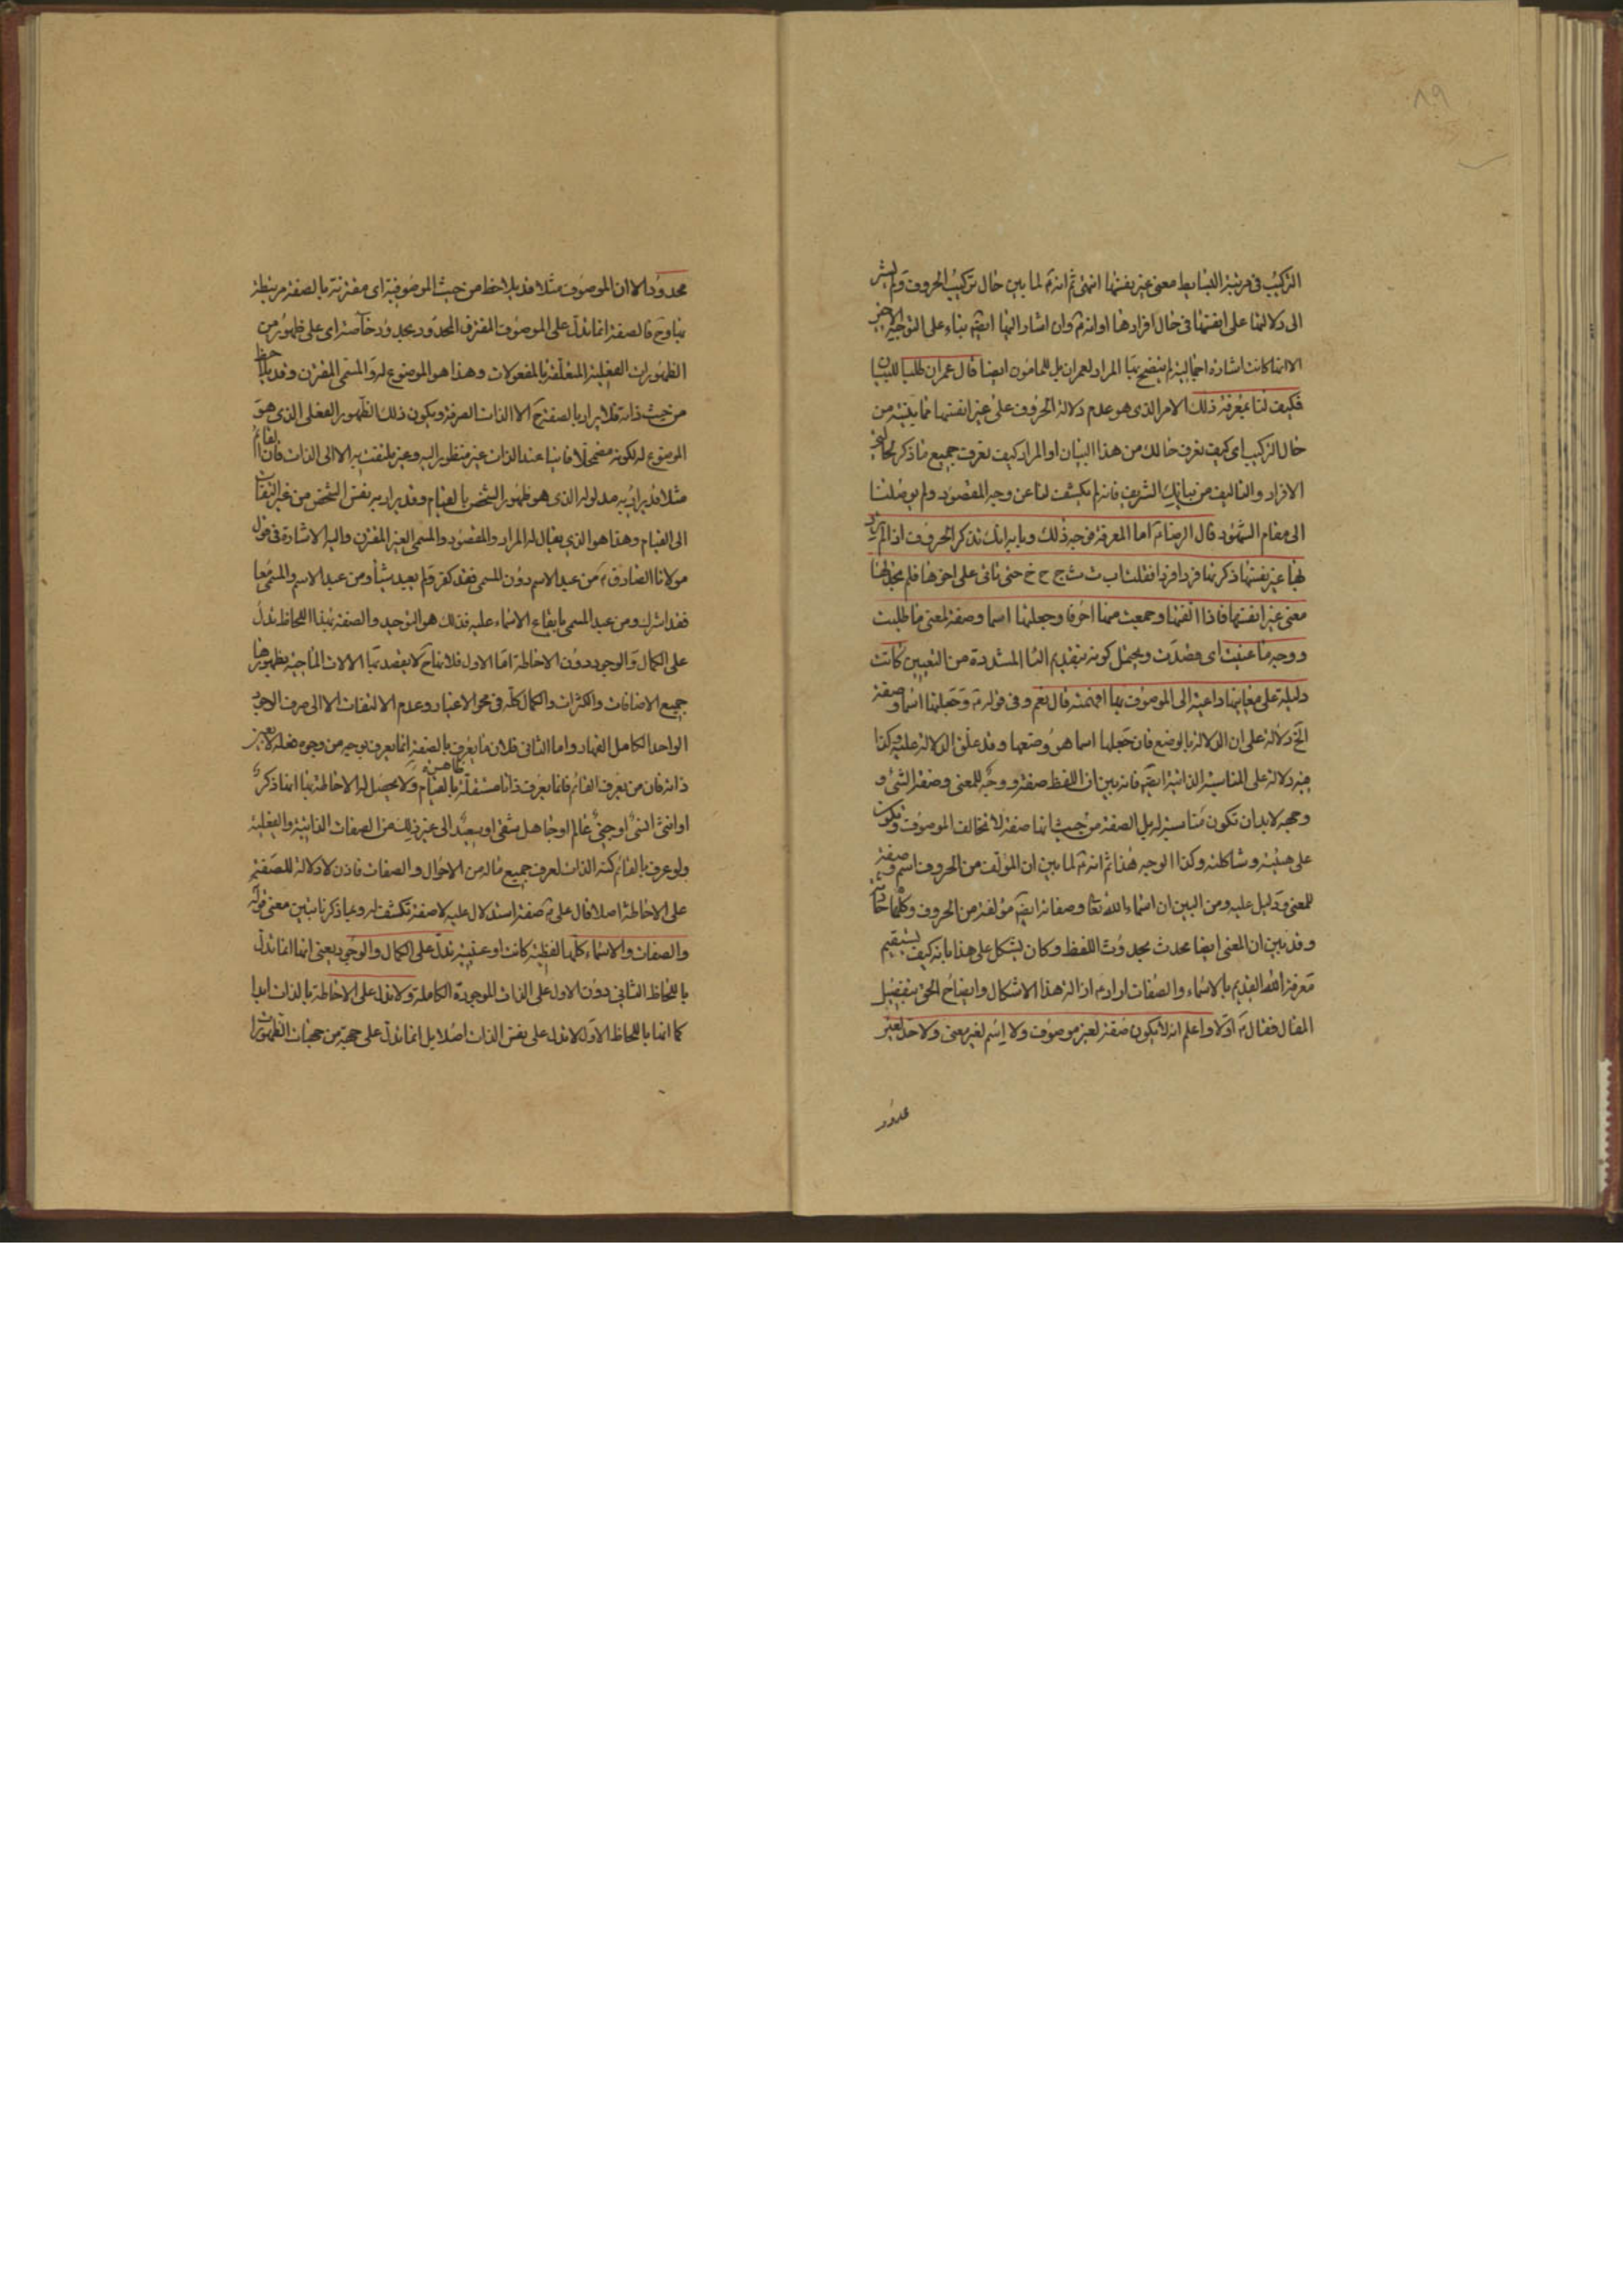 ٨٩
التركيب فى مرتبة البسايط معنى غير نفسها انتهى ثم انه ع لما بين حال تركيب الحروف ولم يشر
الى دلالتها على انفسها فى حال افرادها او انه ع وان اشار اليها ايضا بناء على التوجيه الاخير
الا انها كانت اشارة اجمالية لم يتضح بها المراد لعمران بل للمامون ايضا قال عمران طلبا للبيان
فكيف لنا بمعرفة ذلك الامر الذى هو عدم دلالة الحروف على غير انفسها مما بينته من
حال التركيب اى كيف نعرف حالك من هذا البيان او المراد كيف نعرف جميع ما ذكر
الافراد والتاليف من بيانك الشريف فانه لم يكشف لنا عن وجه المقصود ولم يوصلنا
الى مقام الشهود قال الرضا ع اما المعرفة فوجه ذلك وبابه انك تذكر الحروف اذا لم ترد
لها غير نفسها ذكرتها فردا فردا فقلت ا ب ت ث ج ح خ حتى تاتى على اخرها فلم تجد لها
معنى غير انفسها فاذا الفتها وجمعت منها احرفا وجعلتها اسما وصفة لمعنى ما طلبت
ووجه ما عنيت اى قصدت ويحتمل كونه بتقديم الياء المشددة من التعيين كانت
دليلة على معانيها داعية الى الموصوف بها افهمته قال نعم وفى قوله ع وجعلتها اسما وصفة
الخ دلالة على ان الدلالة بالوضع فان جعلها اسما هو وضعها وقد علق الدلالة عليه وكذا
فيه دلالة على المناسبة الذاتية ايضا فانه بين ان اللفظ صفة ووجه للمعنى وصفة الشئ و
وجهه لابد ان تكون مناسبة له بل الصفة من حيث انها صفة لا تخالف الموصوف وتكون
على هيئته وشاكلته وكذا الوجه هذا ثم انه ع لما بين ان المؤلف من الحروف اسم وصفة
للمعنى ودليل عليه ومن البين ان اسماء الله تعا وصفاته ايضا مؤلفة من الحروف وكلها حادثة
وقد تبين ان المعنى ايضا محدث بحدوث اللفظ وكان يشكل على هذا بانه كيف يستقيم
معرفة الله القديم بالاسماء والصفات اراد ع ازالة هذا الاشكال وايضاح الحق بتفضيل
المقال فقال ع اولا واعلم انه لا يكون صفة لغير موصوف ولا اسم لغير معنى ولا حد لغير
محدود
محدود الا ان الموصوف مثلا قد يلاحظ من حيث الموصوفية اى مقترنة بالصفة مرتبطة
بها وح فالصفة انما تدل على الموصوف المقترن المحدود بحدود خاصة اى على ظهور من
الظهورات الفعلية المتعلقة بالمفعولات وهذا هو الموضوع له والمسمى المقترن وقد يلاحظ
من حيث ذاته فلا يراد بالصفة ح الا الذات الصرفة ويكون ذلك الظهور الفعلى الذى هو
الموضوع له لكونه مضمحلا فانيا عند الذات غير منظور اليه وغير ملتفت به الا الى الذات فان القائم
مثلا قد يراد به مدلوله الذى هو ظهور الشخص بالقيام وقد يراد به نفس الشخص من غير التفات
الى القيام وهذا هو الذى يقال له المراد والمقصود والمسمى الغير المقترن واليه الاشارة فى قول
مولانا الصادق ع من عبد الاسم دون المسمى فقد كفر ولم يعبد شيئا ومن عبد الاسم والمسمى معا
فقد اشرك ومن عبد المسمى بايقاع الاسماء عليه فذلك هو التوحيد والصفة بهذا اللحاظ تدل
على الكمال والوجود دون الاحاطة اما الاول فلانها ح لا يقصد بها الا الذات الماحية بظهورها
جميع الاضافات والكثرات والكمال كله فى محو الاغيار وعدم الالتفات الا الى صرف الوجود
الواحد الكامل القهار واما الثانى فلان ما يعرف بالصفة انما يعرف بوجه من وجوه فعله لا بعين
ذاته فان من يعرف القائم فانما يعرف ذاتا مستقلة ظاهرة بالقيام ولا يحصل له الاحاطة بها انها ذكر
او انثى انسى او جنى عالم او جاهل شقى او سعيد الى غير ذلك من الصفات الذاتية والفعلية
ولو عرف بالقائم كنه الذات لعرف جميع ماله من الاحوال والصفات فاذن لا دلالة للصفة
على الاحاطة اصلا قال على ع صفة استدلال عليه لا صفة تكشف له وبما ذكرنا تبين معنى قوله
والصفات والاسماء كلها لفظية كانت او عينية تدل على الكمال والوجود يعنى انها انما تدل
باللحاظ الثانى دون الاول على الذات الموجودة الكاملة ولا تدل على الاحاطة بالذات ابدا
كما انها باللحاظ الاول لا تدل على نفس الذات اصلا بل انما تدل على جهة من جهات الظهورات